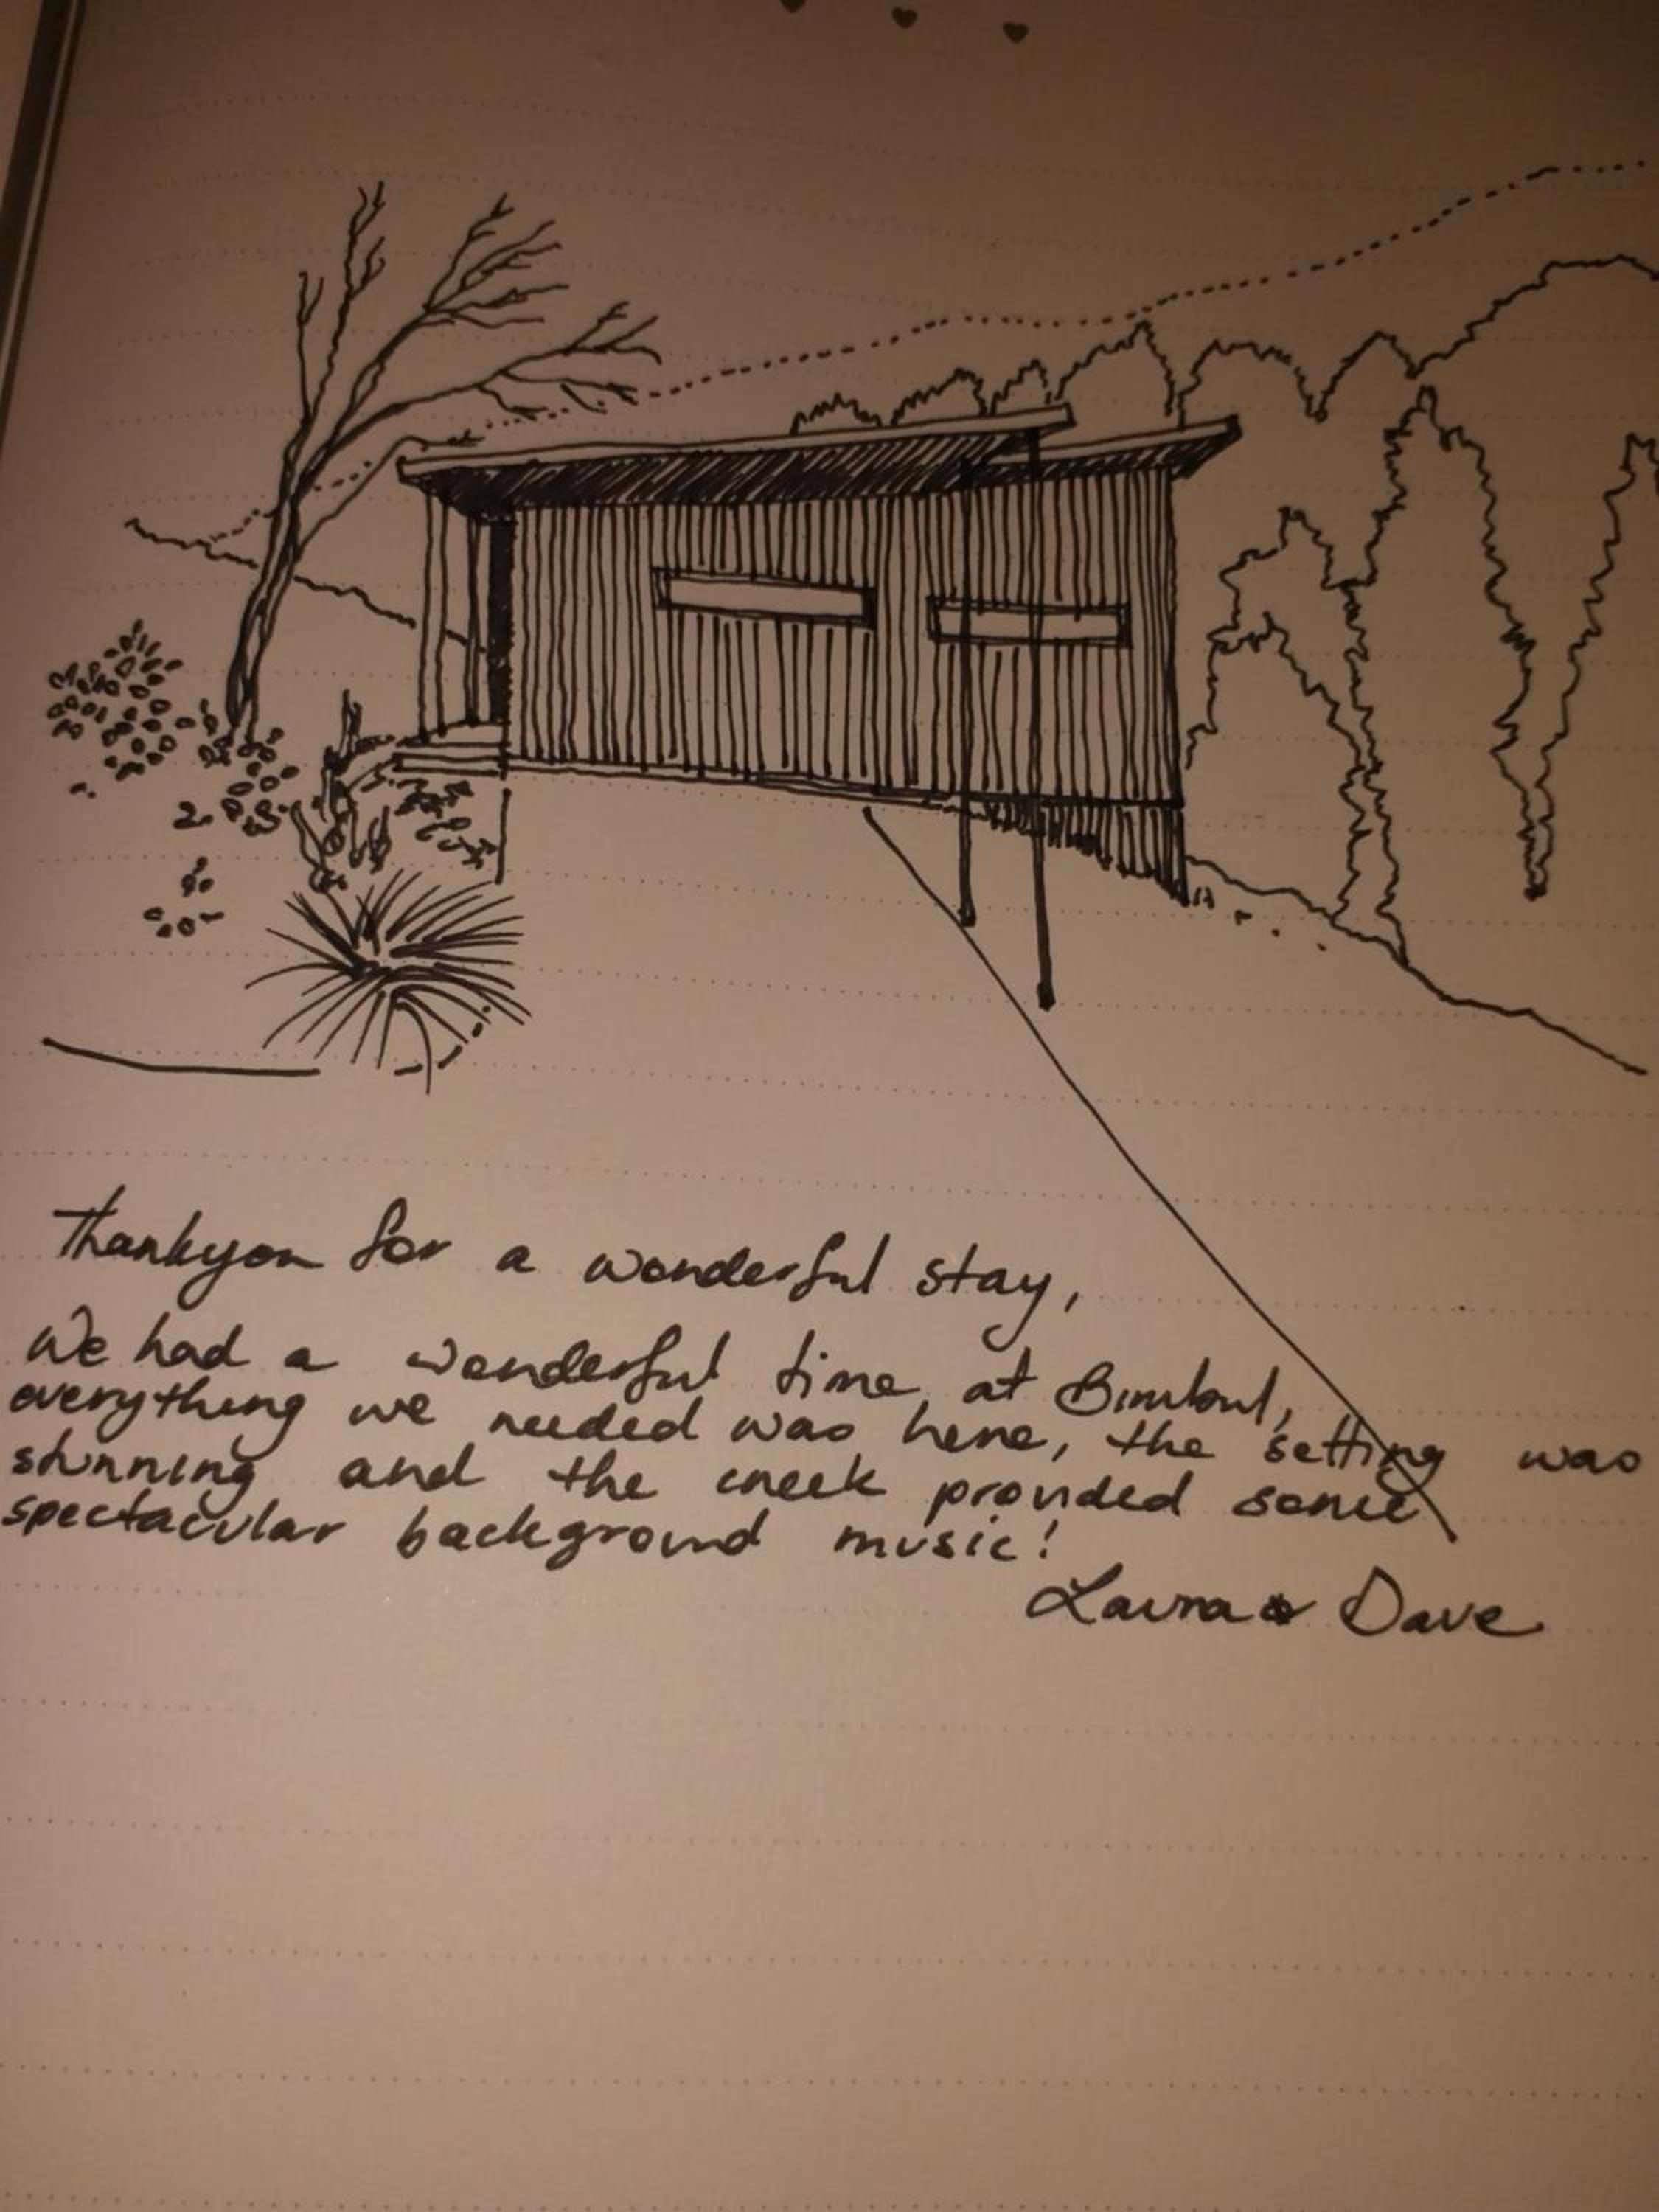 Thankyou for a wonderful stay,
We had a wonderful time at Bimbul,
everything we needed was here, the setting was
stunning and the creek provided some
spectacular background music!
Laura & Dave